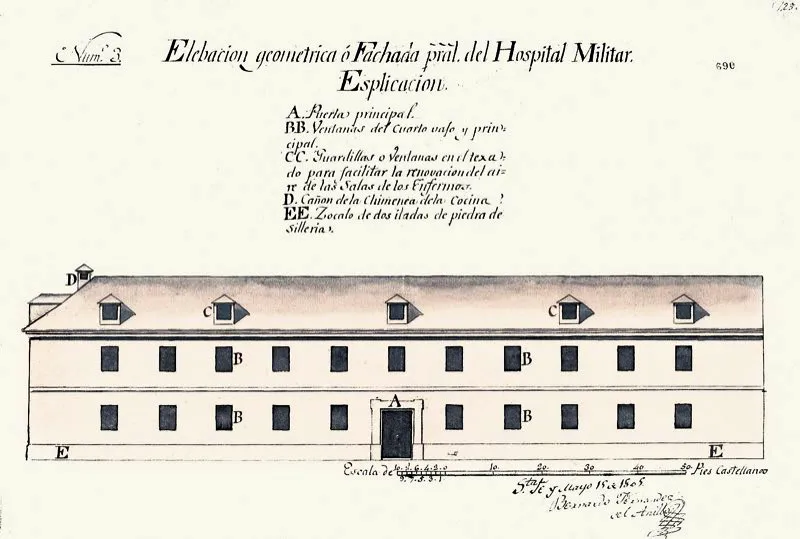 123.
Num.º 3.
Elebacion geometrica ó Fachada pral. del Hospital Militar.
690
Esplicacion.
A. Puerta principal.
BB. Ventanas del Cuarto vajo y prin=
cipal.
CC. Guardillas o Ventanas en el texa=
do para facilitar la renovacion del ai=
re de las Salas de los Enfermos.
D. Cañon de la Chimenea de la Cocina
EE. Zocalo de dos iladas de piedra de
Silleria.
D
C C
B B
A
B B
E E
Escala de 10. 8. 6. 4. 2. 0 10. 20. 30. 40. 50. Pies Castellanos
9. 7. 5. 3. 1
Sta. Fe y Mayo 15 de 1805
Bernardo Fernandez
del Anillo